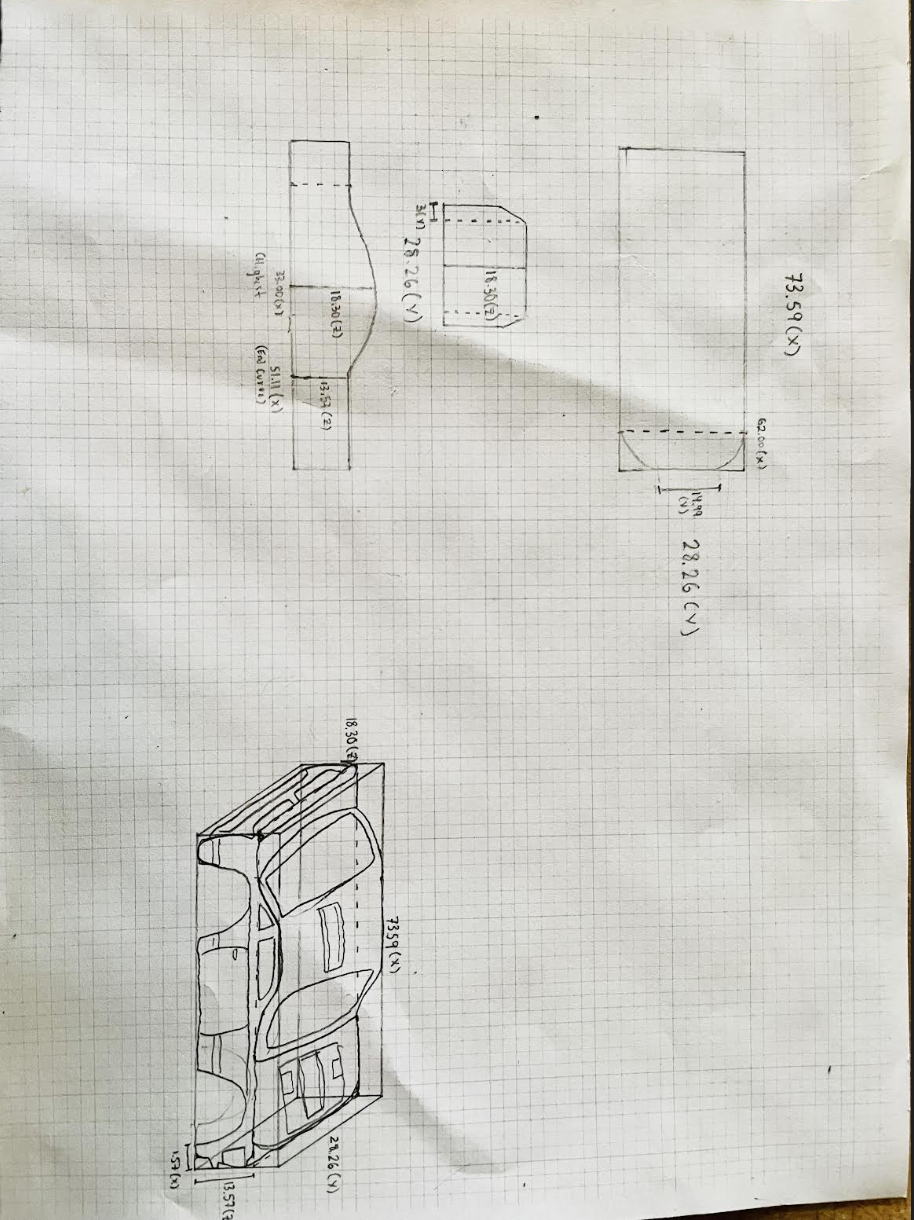 73.59 (X)
62.00 (X)
14.99
(Y)
28.26 (Y)
18.30(Z)
3(Y)
28.26 (Y)
18.30 (Z)
13.57 (Z)
33.00 (X)
(Highest
51.11 (X)
(End Curve)
18.30(Z)
73.59 (X)
28.26 (Y)
13.57(Z
1.57 (X)